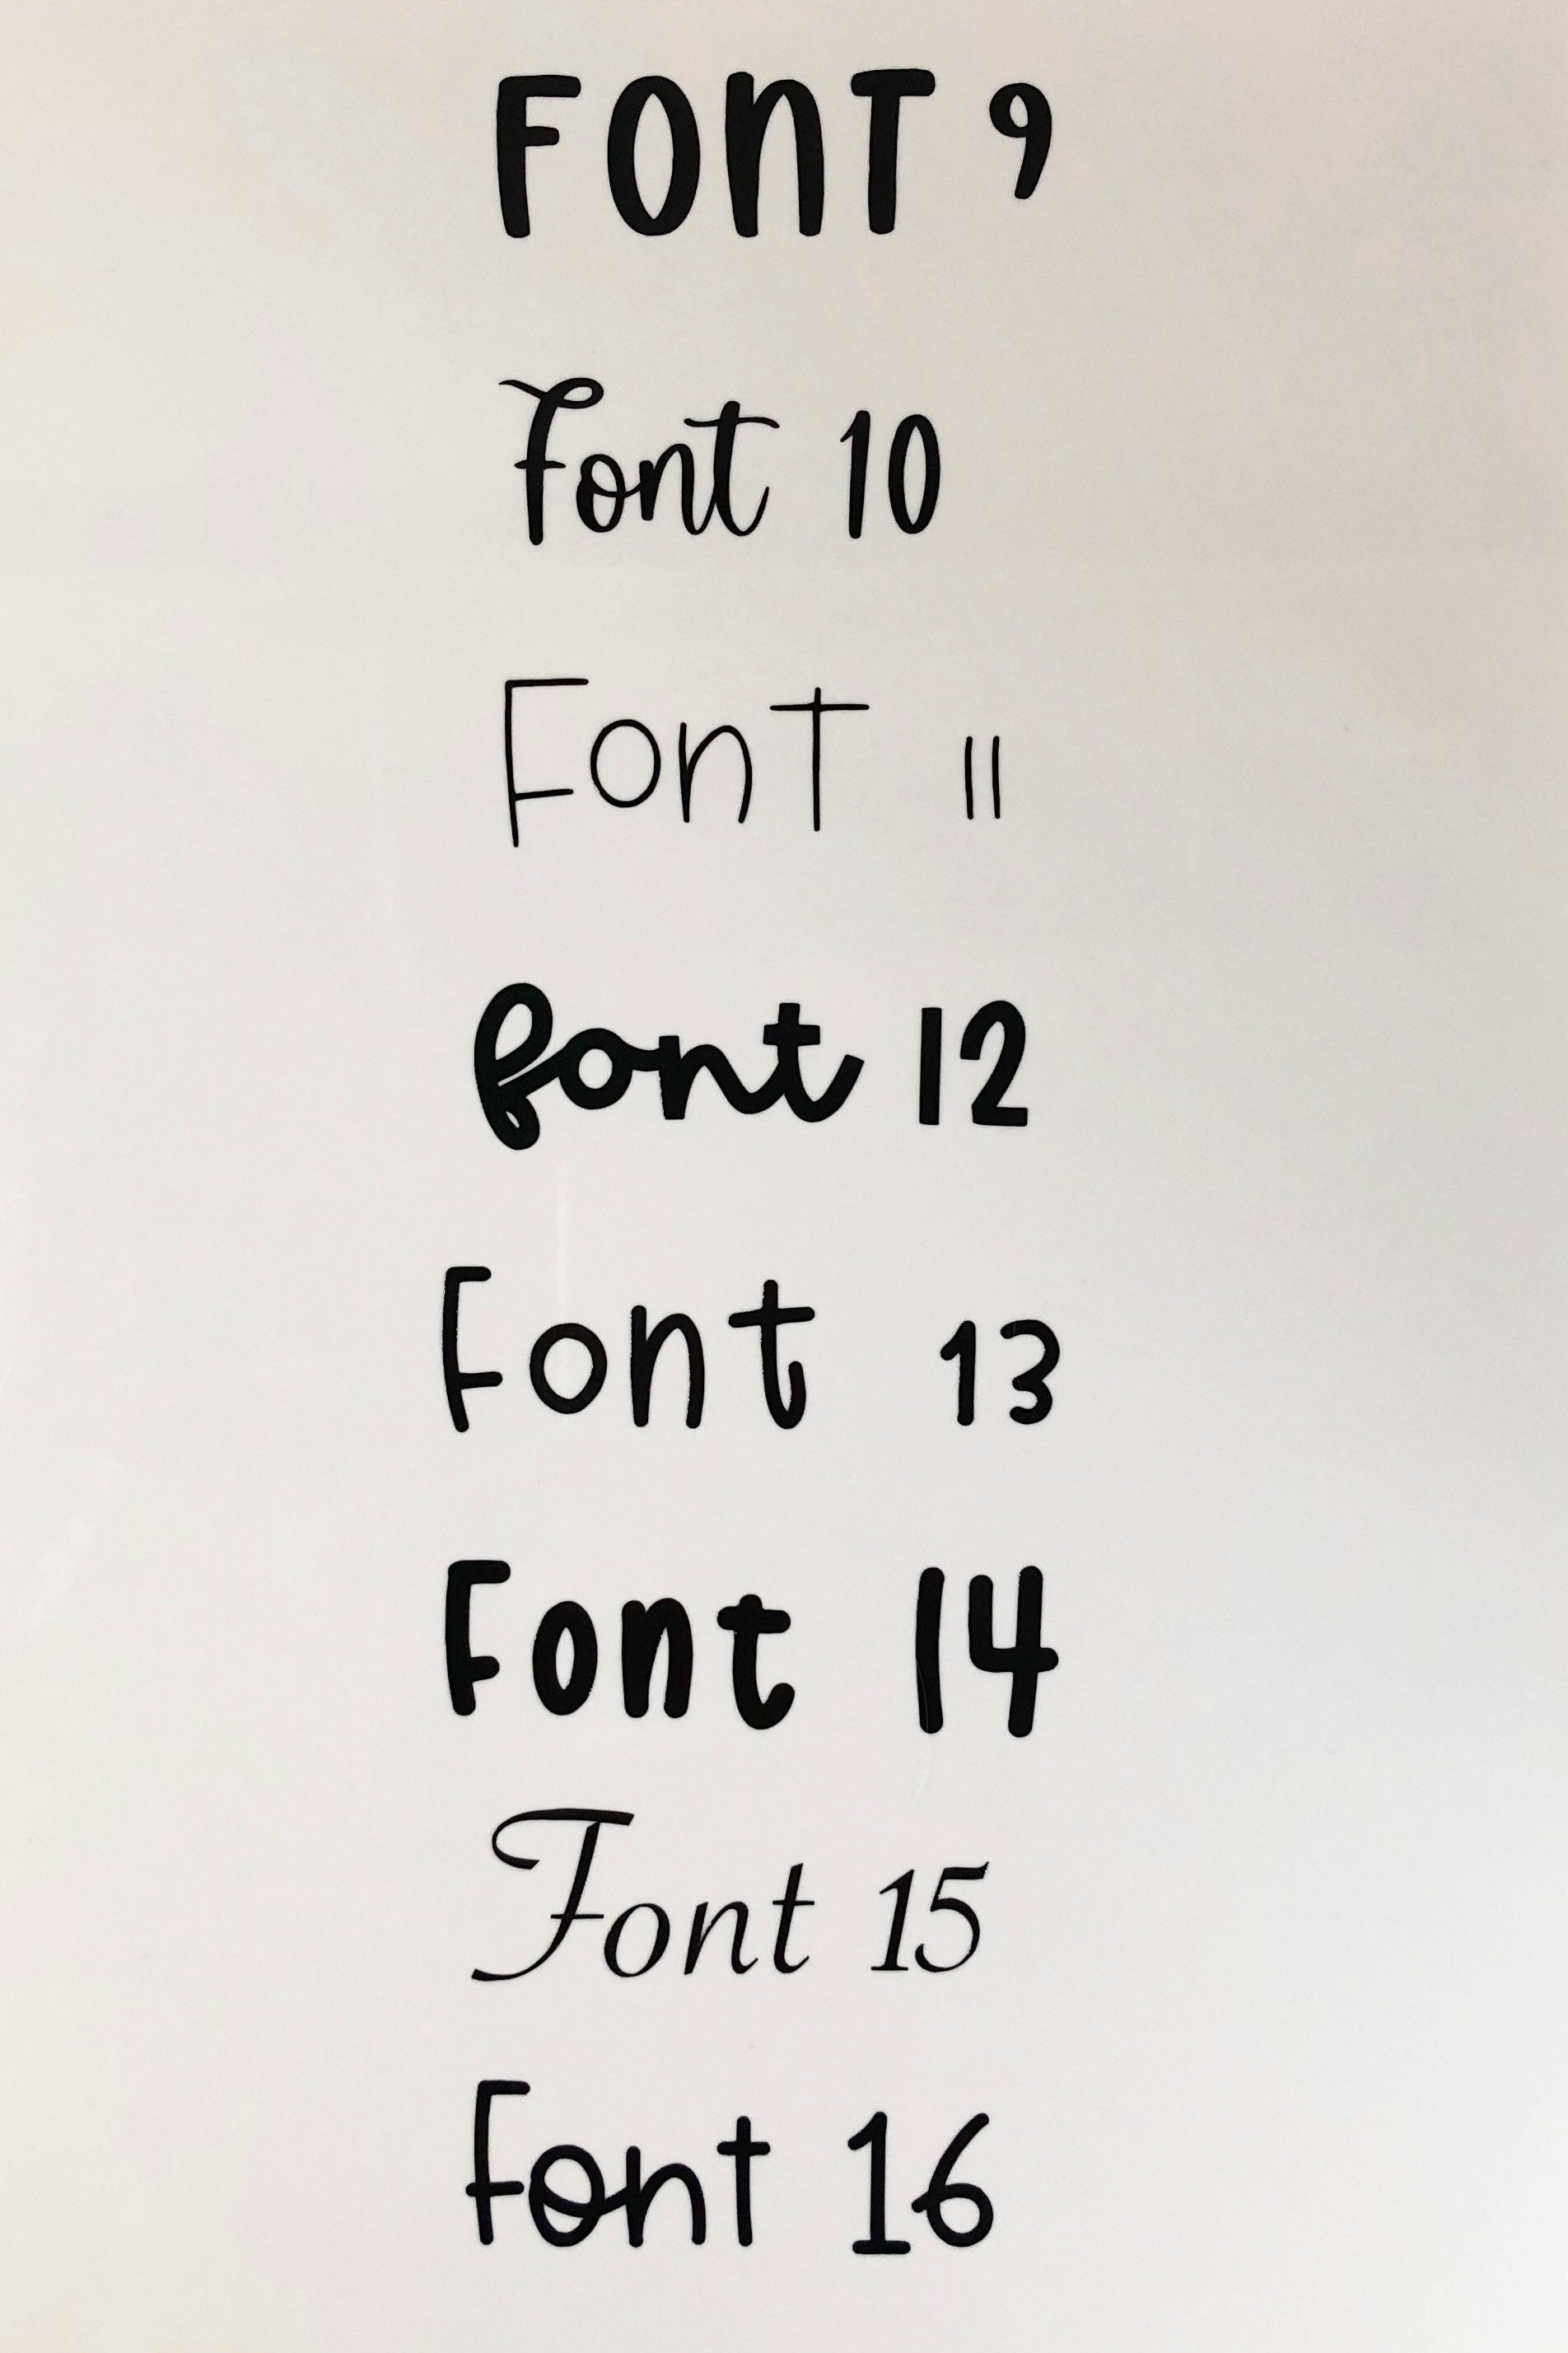 FOnT 9
Font 10
Font 11
font 12
Font 13
Font 14
Font 15
Font 16